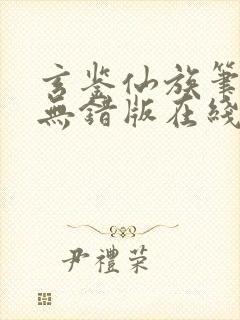 玄鉴仙族筆
無錯版在綫
尹禮荣